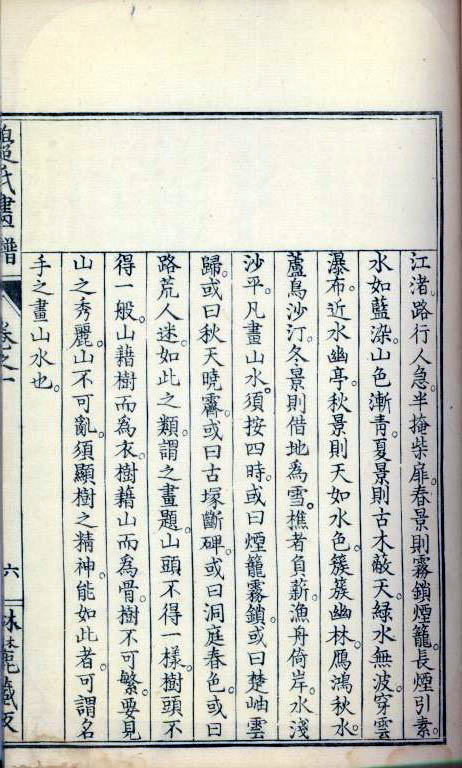 江渚。路行人急。半掩柴扉。春景則霧鎖煙籠。長煙引素。
水如藍染。山色漸青。夏景則古木蔽天。綠水無波。穿雲
瀑布。近水幽亭。秋景則天如水色。簇簇幽林。鴈鴻秋水。
蘆鳥沙汀。冬景則借地為雪。樵者負薪。漁舟倚岸。水淺
沙平。凡畫山水。須按四時。或曰煙籠霧鎖。或曰楚岫雲
歸。或曰秋天曉霽。或曰古塚斷碑。或曰洞庭春色。或曰
路荒人迷。如此之類。謂之畫題。山頭不得一樣。樹頭不
得一般。山藉樹而為衣。樹藉山而為骨。樹不可繁。要見
山之秀麗。山不可亂。須顯樹之精神。能如此者。可謂名
手之畫山水也。
氏畫譜 卷之一 六